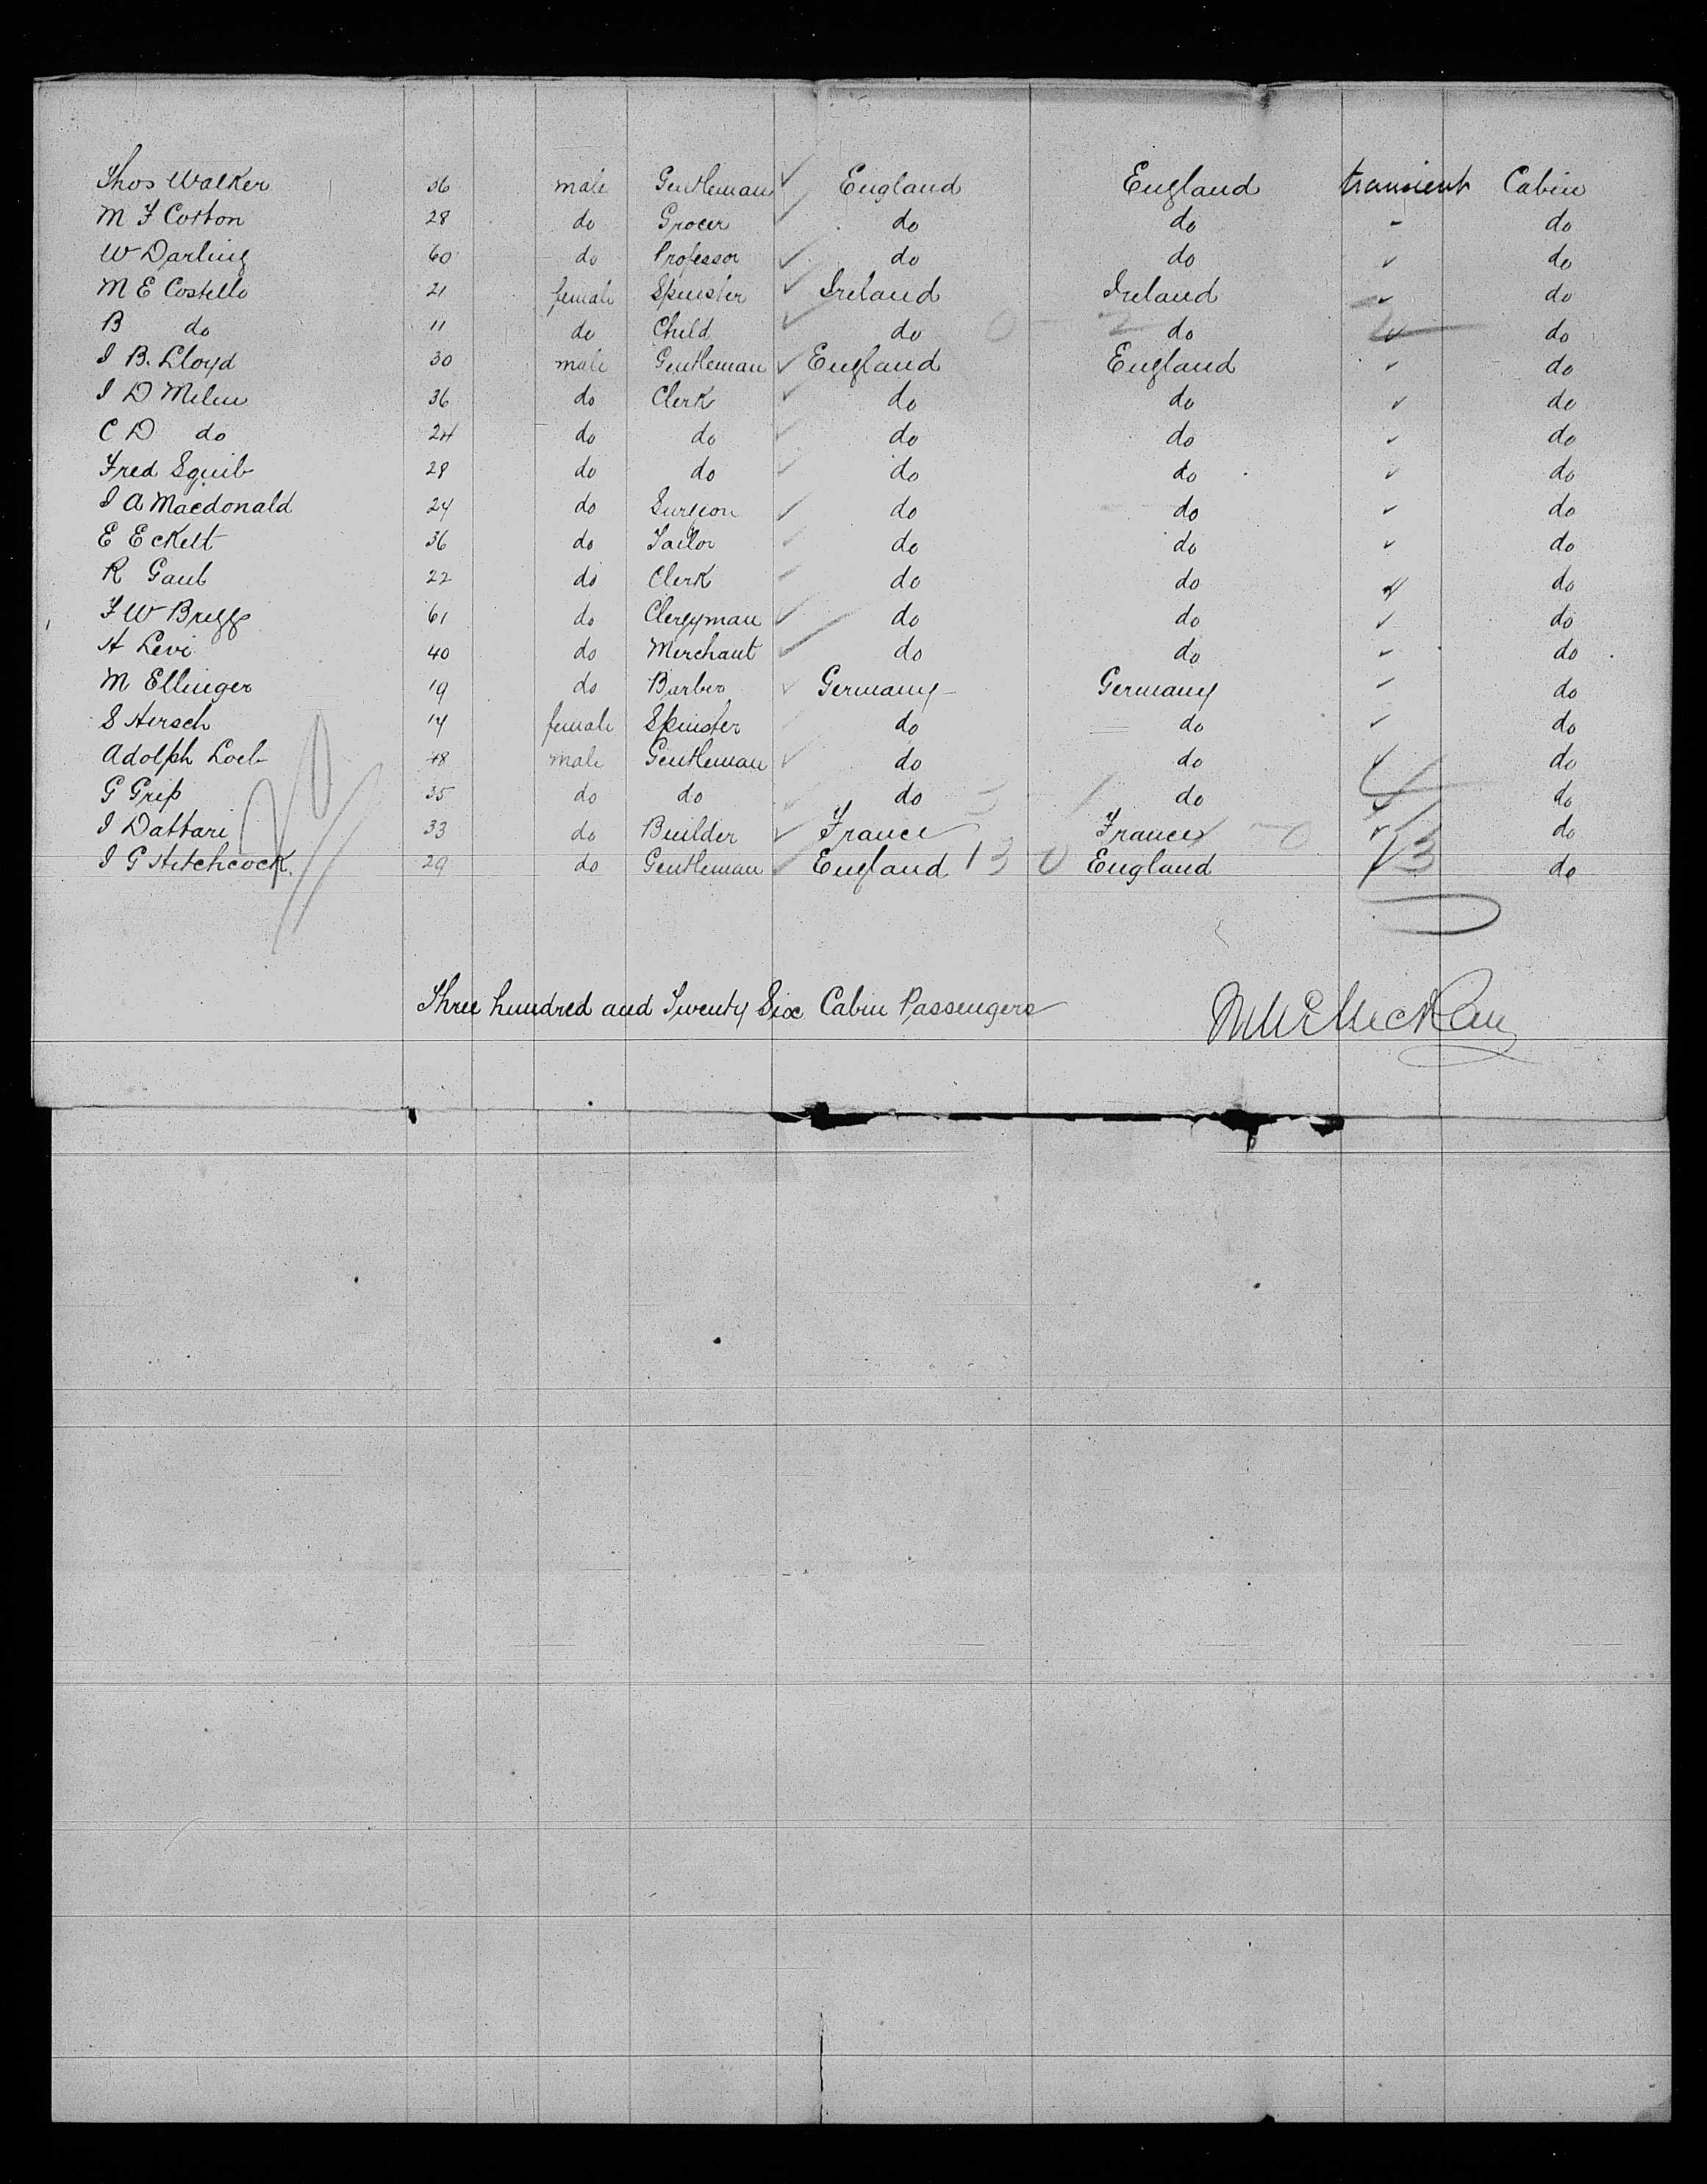 Thos Walker 36 male Gentleman ✓ England England transient Cabin
M F Cotton 28 do Grocer ✓ do do - do
W Darling 60 do Professor ✓ do do ✓ do
M E Costello 21 female Spinster ✓ Ireland Ireland ✓ do
B do 11 do Child ✓ do 0 2 do do
I B. Lloyd 30 male Gentleman ✓ England England ✓ do
I D Milne 36 do Clerk ✓ do do ✓ do
C D do 24 do do ✓ do do ✓ do
Fred Squib 28 do do ✓ do do ✓ do
I A Macdonald 24 do Surgeon ✓ do do ✓ do
E Eckett 36 do Tailor ✓ do do ✓ do
R Gaul 22 do Clerk ✓ do do ✓ do
F W Briggs 61 do Clergyman ✓ do do ✓ do
H Levi 40 do Merchant ✓ do do ✓ do
M Ellinger 19 do Barber ✓ Germany Germany ✓ do
S Hersch 14 female Spinster do do ✓ do
Adolph Loeb 48 male Gentleman ✓ do do ✓ do
G Grip 35 do do ✓ do do do
I Dattari 33 do Builder ✓ France France ✓ do
I G Hitchcock 29 do Gentleman ✓ England 13 0 England 13 do
Three hundred and Twenty Six Cabin Passengers